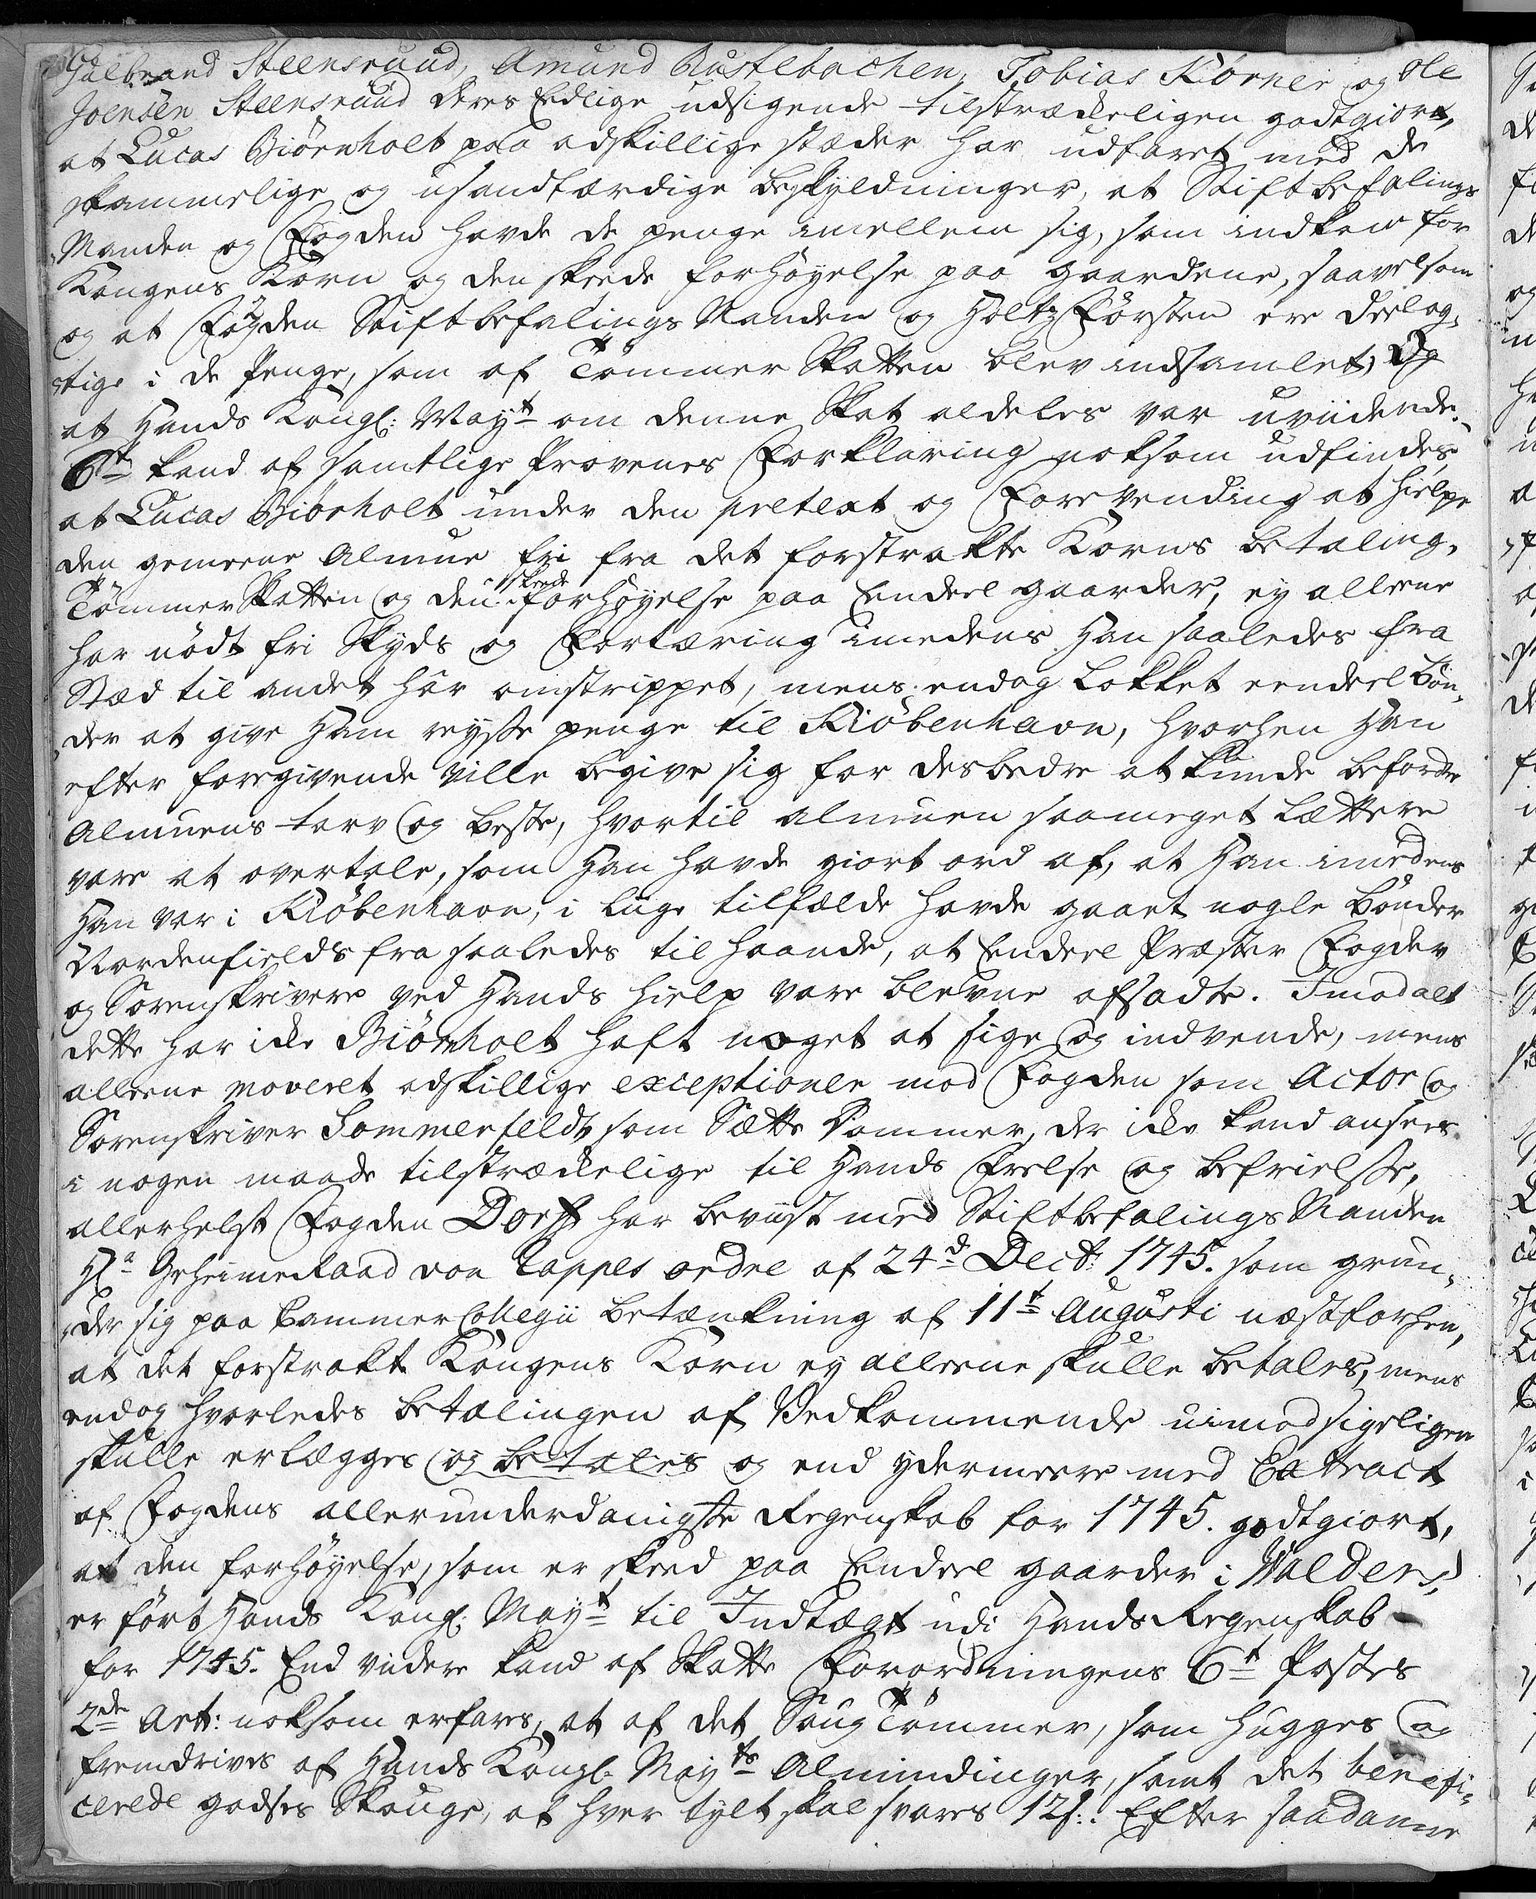 Gulbrand Steensruud, Amund Rustebachen, Tobias Kørner og Ole
Joensen Steensruud deres Eedlige udsigende tilstrækkeligen godtgiort,
at Lucas Biørnholt paa adskillige stæder har udført med de
skammelige og usandfærdige beskyldninger, at Stiftbefalings
Manden og Fogden havde de penge imellem sig, som indkom for
Kongens Korn og den skeede forhøyelse paa gaardene, saavelsom
og at Fogden Stiftbefalings Manden og Holtzførsten ere deelag-
tige i de Penge, som af Tømmer Skatten blev indsamlet, Og
at Hands Kongl: Mayt om denne Skat aldeles var uviidende.
6te kand af samtlige Provenes Forklaring noksom udfindes,
at Lucas Biørholt under den pretext og Forevending at hielpe
den gemeene Almue fri fra det forstrakte Korns betaling,
Tømmer Skatten og den skeede forhøyelse paa Endeel gaarder, ey alleene
har nødt fri Skyds og Fortæring imedens Han saaledes fra
Stæd til andet har omstrippet, mens endog lokket eendeel Bøn-
der at give Ham reysse penge til Kiøbenhavn, hvorhen Han
efter foregivende ville begive sig for desbedre at kunde befordre
Almuens tarv og beste, hvortil almuen saameget lættere
vare at overtale, som Han havde giort ord af, at Han imedens
Han var i Kiøbenhavn, i liige tilfælde havde gaaet nogle bønder
Nordenfields fra saaledes til haande, at Endeel Præster Fogder
og Sorenskrivere ved Hands hielp vare blevne afsadte. Imod alt
dette har ikke Biørnholt haft noget at sige og indvende, mens
alleene moveret adskillige exceptioner mod Fogden som Actor og
Sorenskriver Sommerfeldt som Sætte Dommer, der ikke kand ansees
i nogen maade tilstrækkelige til Hands Frelse og befrielsse,
allerhelst Fogden Dorff har beviist med Stiftbefalings Manden
Hr Geheimeraad von Rappes ordre af 24d Decbr: 1745. som grun-
der sig paa Cammer Collegii betænkning af 11te Augusti næstforhen,
at det forstrakte Kongens Korn ey alleene skulle betales, mens
endog hvorledes betalingen af Vedkommende uimodsigeligen
skulle erlægges og betales og end ydermeere med Extract
af Fogdens allerunderdanigste Regenskab for 1745. godtgiort,
at den forhøyelse, som er skeed paa Endeel gaarder i Walders,
er ført Hands Kongl: Mayt til Indtægt udi Hands Regenskab
for 1745. End viidere kand af Skatte Forordningens 6te Postes
2de Art: noksom erfares, at af det Saug Tømmer, som hugges og
fremdrives af Hands Kongl. Mayts Almindinger, samt det benefi-
cerede godses Skouge, at hver tylt skal svares 12s.: Efter saadanne